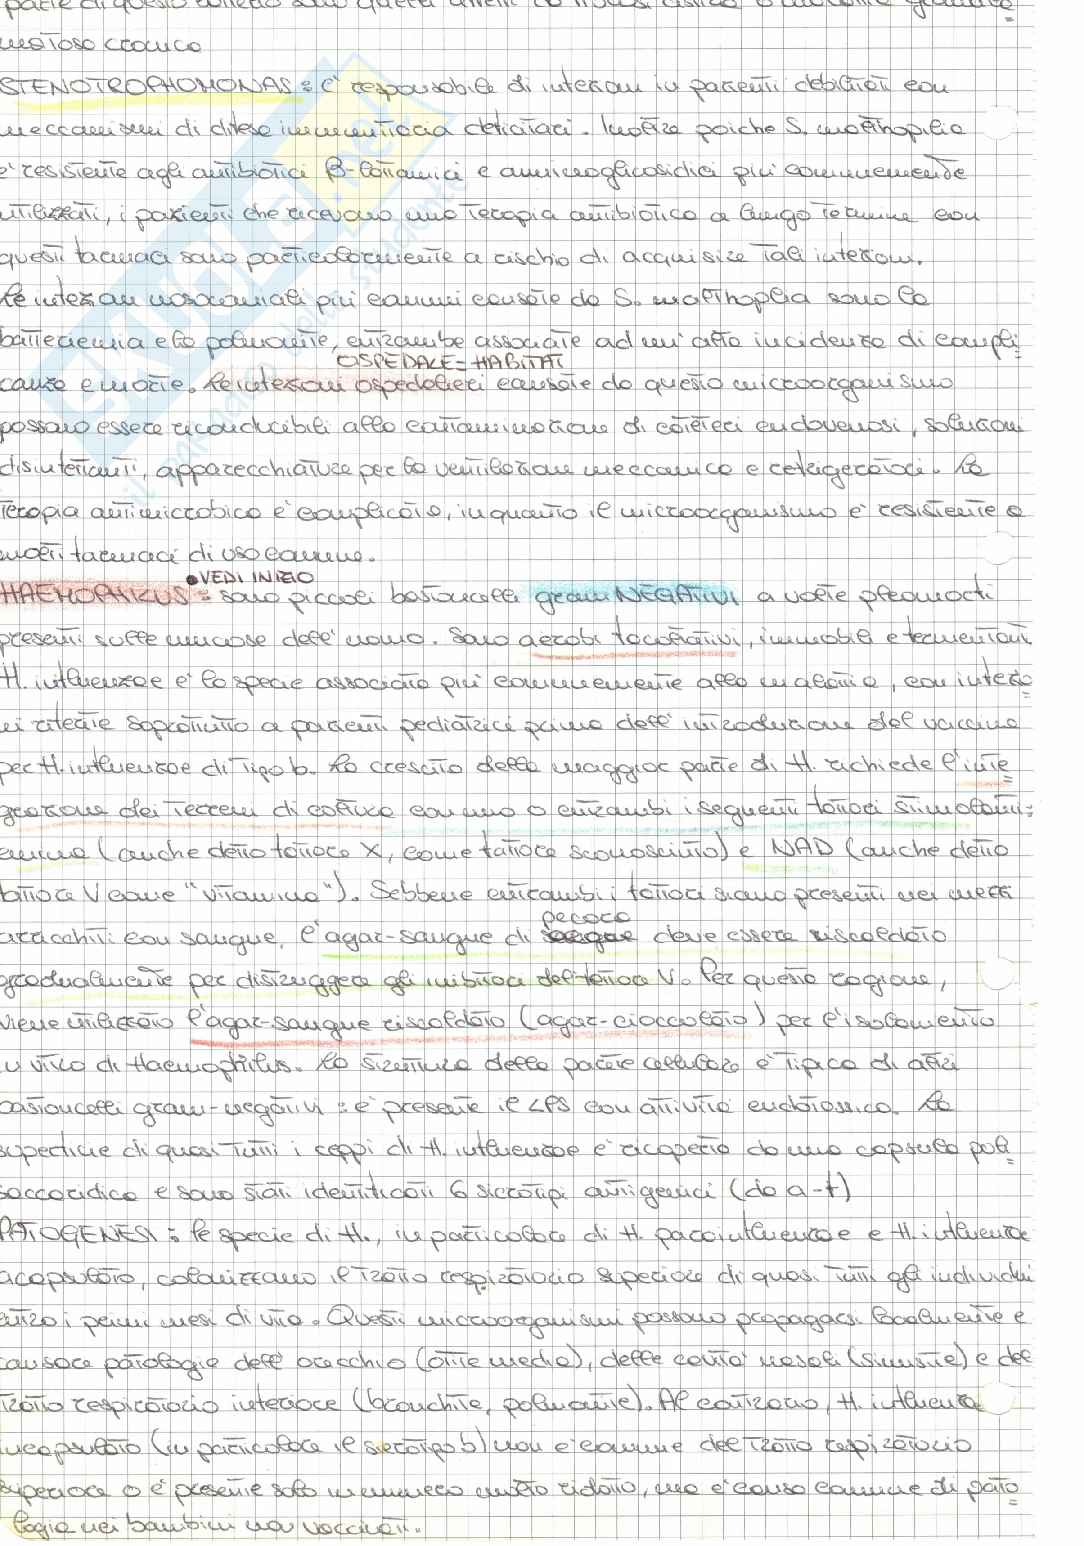 matoso cronico
STENOTROPHOMONAS: è responsabile di infezioni in pazienti debilitati con
meccanismi di difesa immunitaria deficitari. Inoltre poiché S. malthophilia
è resistente agli antibiotici β-lattamici e amminoglicosidici più comunemente
utilizzati, i pazienti che ricevono una terapia antibiotica a lungo termine con
questi farmaci sono particolarmente a rischio di acquisire tali infezioni.
Le infezioni nosocomiali più comuni causate da S. malthophilia sono la
batteriemia e la polmonite, entrambe associate ad un'alta incidenza di compli=
OSPEDALE = HABITAT
canze e morte. Le infezioni ospedalieri causate da questo microorganismo
possono essere riconducibili alla contaminazione di cateteri endovenosi, soluzioni
disinfettanti, apparecchiature per la ventilazione meccanica e refrigeratori. La
terapia antimicrobica è complicata, in quanto il microorganismo è resistente a
molti farmaci di uso comune.
• VEDI INIZIO
HAEMOPHILUS: sono piccoli bastoncelli gram NEGATIVI a volte pleomorfi
presenti sulle mucose dell'uomo. Sono aerobi facoltativi, immobili e fermentanti
H. influenzae è la specie associata più comunemente alla malattia, con infezio=
ni riferite soprattutto a pazienti pediatrici prima dell'introduzione del vaccino
per H. influenzae di tipo b. La crescita della maggior parte di H. richiede l'inte=
grazione dei terreni di coltura con uno o entrambi i seguenti fattori stimolanti:
emina (anche detto fattore X, come fattore sconosciuto) e NAD (anche detto
fattore V come "vitamina"). Sebbene entrambi i fattori siano presenti nei mezzi
pecora
arricchiti con sangue, l'agar-sangue di deve essere riscaldato
gradualmente per distruggere gli inibitori del fattore V. Per questa ragione,
viene utilizzato l'agar-sangue riscaldato (agar-cioccolato) per l'isolamento
in vitro di Haemophilus. La struttura della parete cellulare è tipica di altri
bastoncelli gram-negativi: è presente il LPS con attività endotossica. La
superficie di quasi tutti i ceppi di H. influenzae è ricoperta da una capsula poli=
saccaridica e sono stati identificati 6 sierotipi antigenici (da a-f)
PATOGENESI: le specie di H., in particolare di H. parainfluenzae e H. influenzae
acapsulato, colonizzano il tratto respiratorio superiore di quasi tutti gli individui
entro i primi mesi di vita. Questi microorganismi possono propagarsi localmente e
causare patologie dell'orecchio (otite media), delle cavità nasali (sinusite) e del
tratto respiratorio inferiore (bronchite, polmonite). Al contrario, H. influenzae
incapsulato (in particolare il sierotipo b) non è comune del tratto respiratorio
superiore o è presente solo in numero molto ridotto, ma è causa comune di pato=
logie nei bambini non vaccinati.
SKUOLA.net
il paradiso dello studente